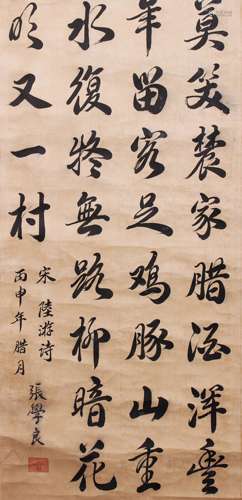 莫笑農家腊酒渾豊
年留客足鸡豚山重
水復疑無路柳暗花
明又一村
宋 陸游詩
丙申年腊月
張學良